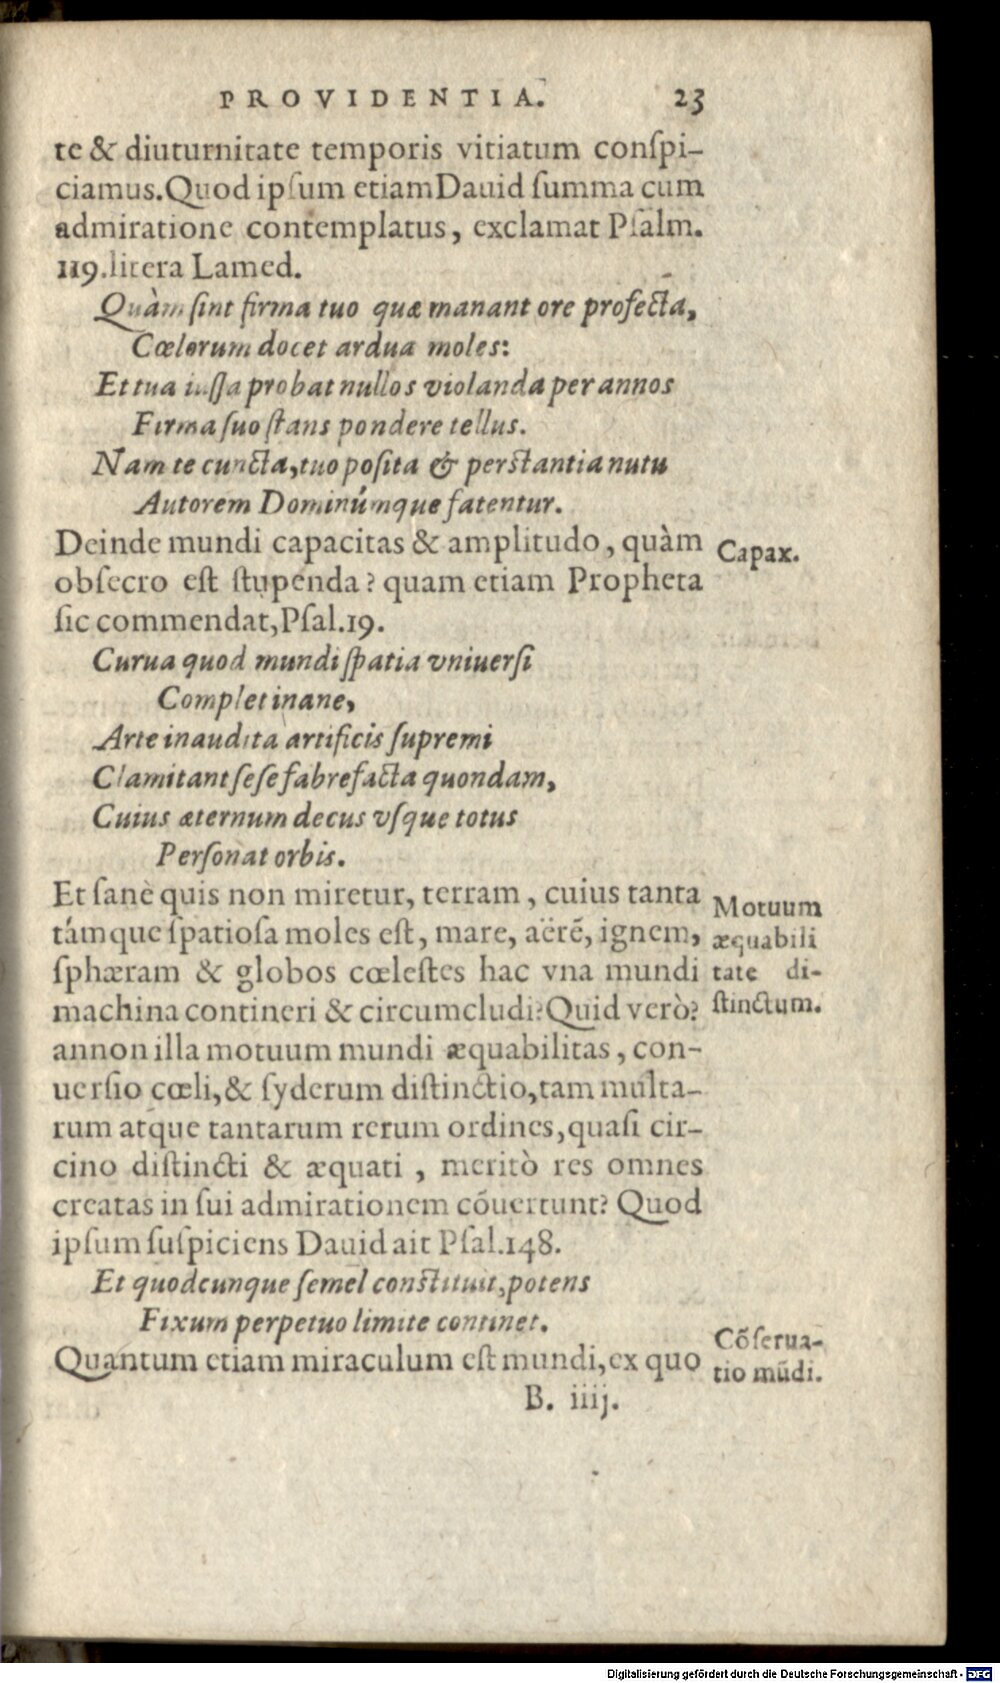 PROVIDENTIA. 23
te & diuturnitate temporis vitiatum conſpi-
ciamus. Quod ipſum etiam Dauid ſumma cum
admiratione contemplatus, exclamat Pſalm.
119. litera Lamed.
Quàm ſint firma tuo quæ manant ore profecta,
Cœlorum docet ardua moles:
Et tua iuſſa probat nullos violanda per annos
Firma ſuo ſtans pondere tellus.
Nam te cuncta, tuo poſita & perſtantia nutu
Autorem Dominúmque fatentur.
Deinde mundi capacitas & amplitudo, quàm
Capax.
obſecro eſt ſtupenda? quam etiam Propheta
ſic commendat, Pſal. 19.
Curua quod mundi ſpatia vniuerſi
Complet inane,
Arte inaudita artificis ſupremi
Clamitant ſeſe fabrefacta quondam,
Cuius æternum decus vſque totus
Perſonat orbis.
Et ſanè quis non miretur, terram, cuius tanta
támque ſpatioſa moles eſt, mare, aërẽ, ignem,
ſphæram & globos cœleſtes hac vna mundi
machina contineri & circumcludi? Quid verò?
Motuum
æquabili
tate di-
ſtinctum.
annon illa motuum mundi æquabilitas, con-
uerſio cœli, & ſyderum diſtinctio, tam multa-
rum atque tantarum rerum ordines, quaſi cir-
cino diſtincti & æquati, meritò res omnes
creatas in ſui admirationem cõuertunt? Quod
ipſum ſuſpiciens Dauid ait Pſal. 148.
Et quodcunque ſemel conſtituit, potens
Fixum perpetuo limite continet.
Quantum etiam miraculum eſt mundi, ex quo
Cõſerua-
tio mũdi.
B. iiij.
Digitalisierung gefördert durch die Deutsche Forschungsgemeinschaft - DFG